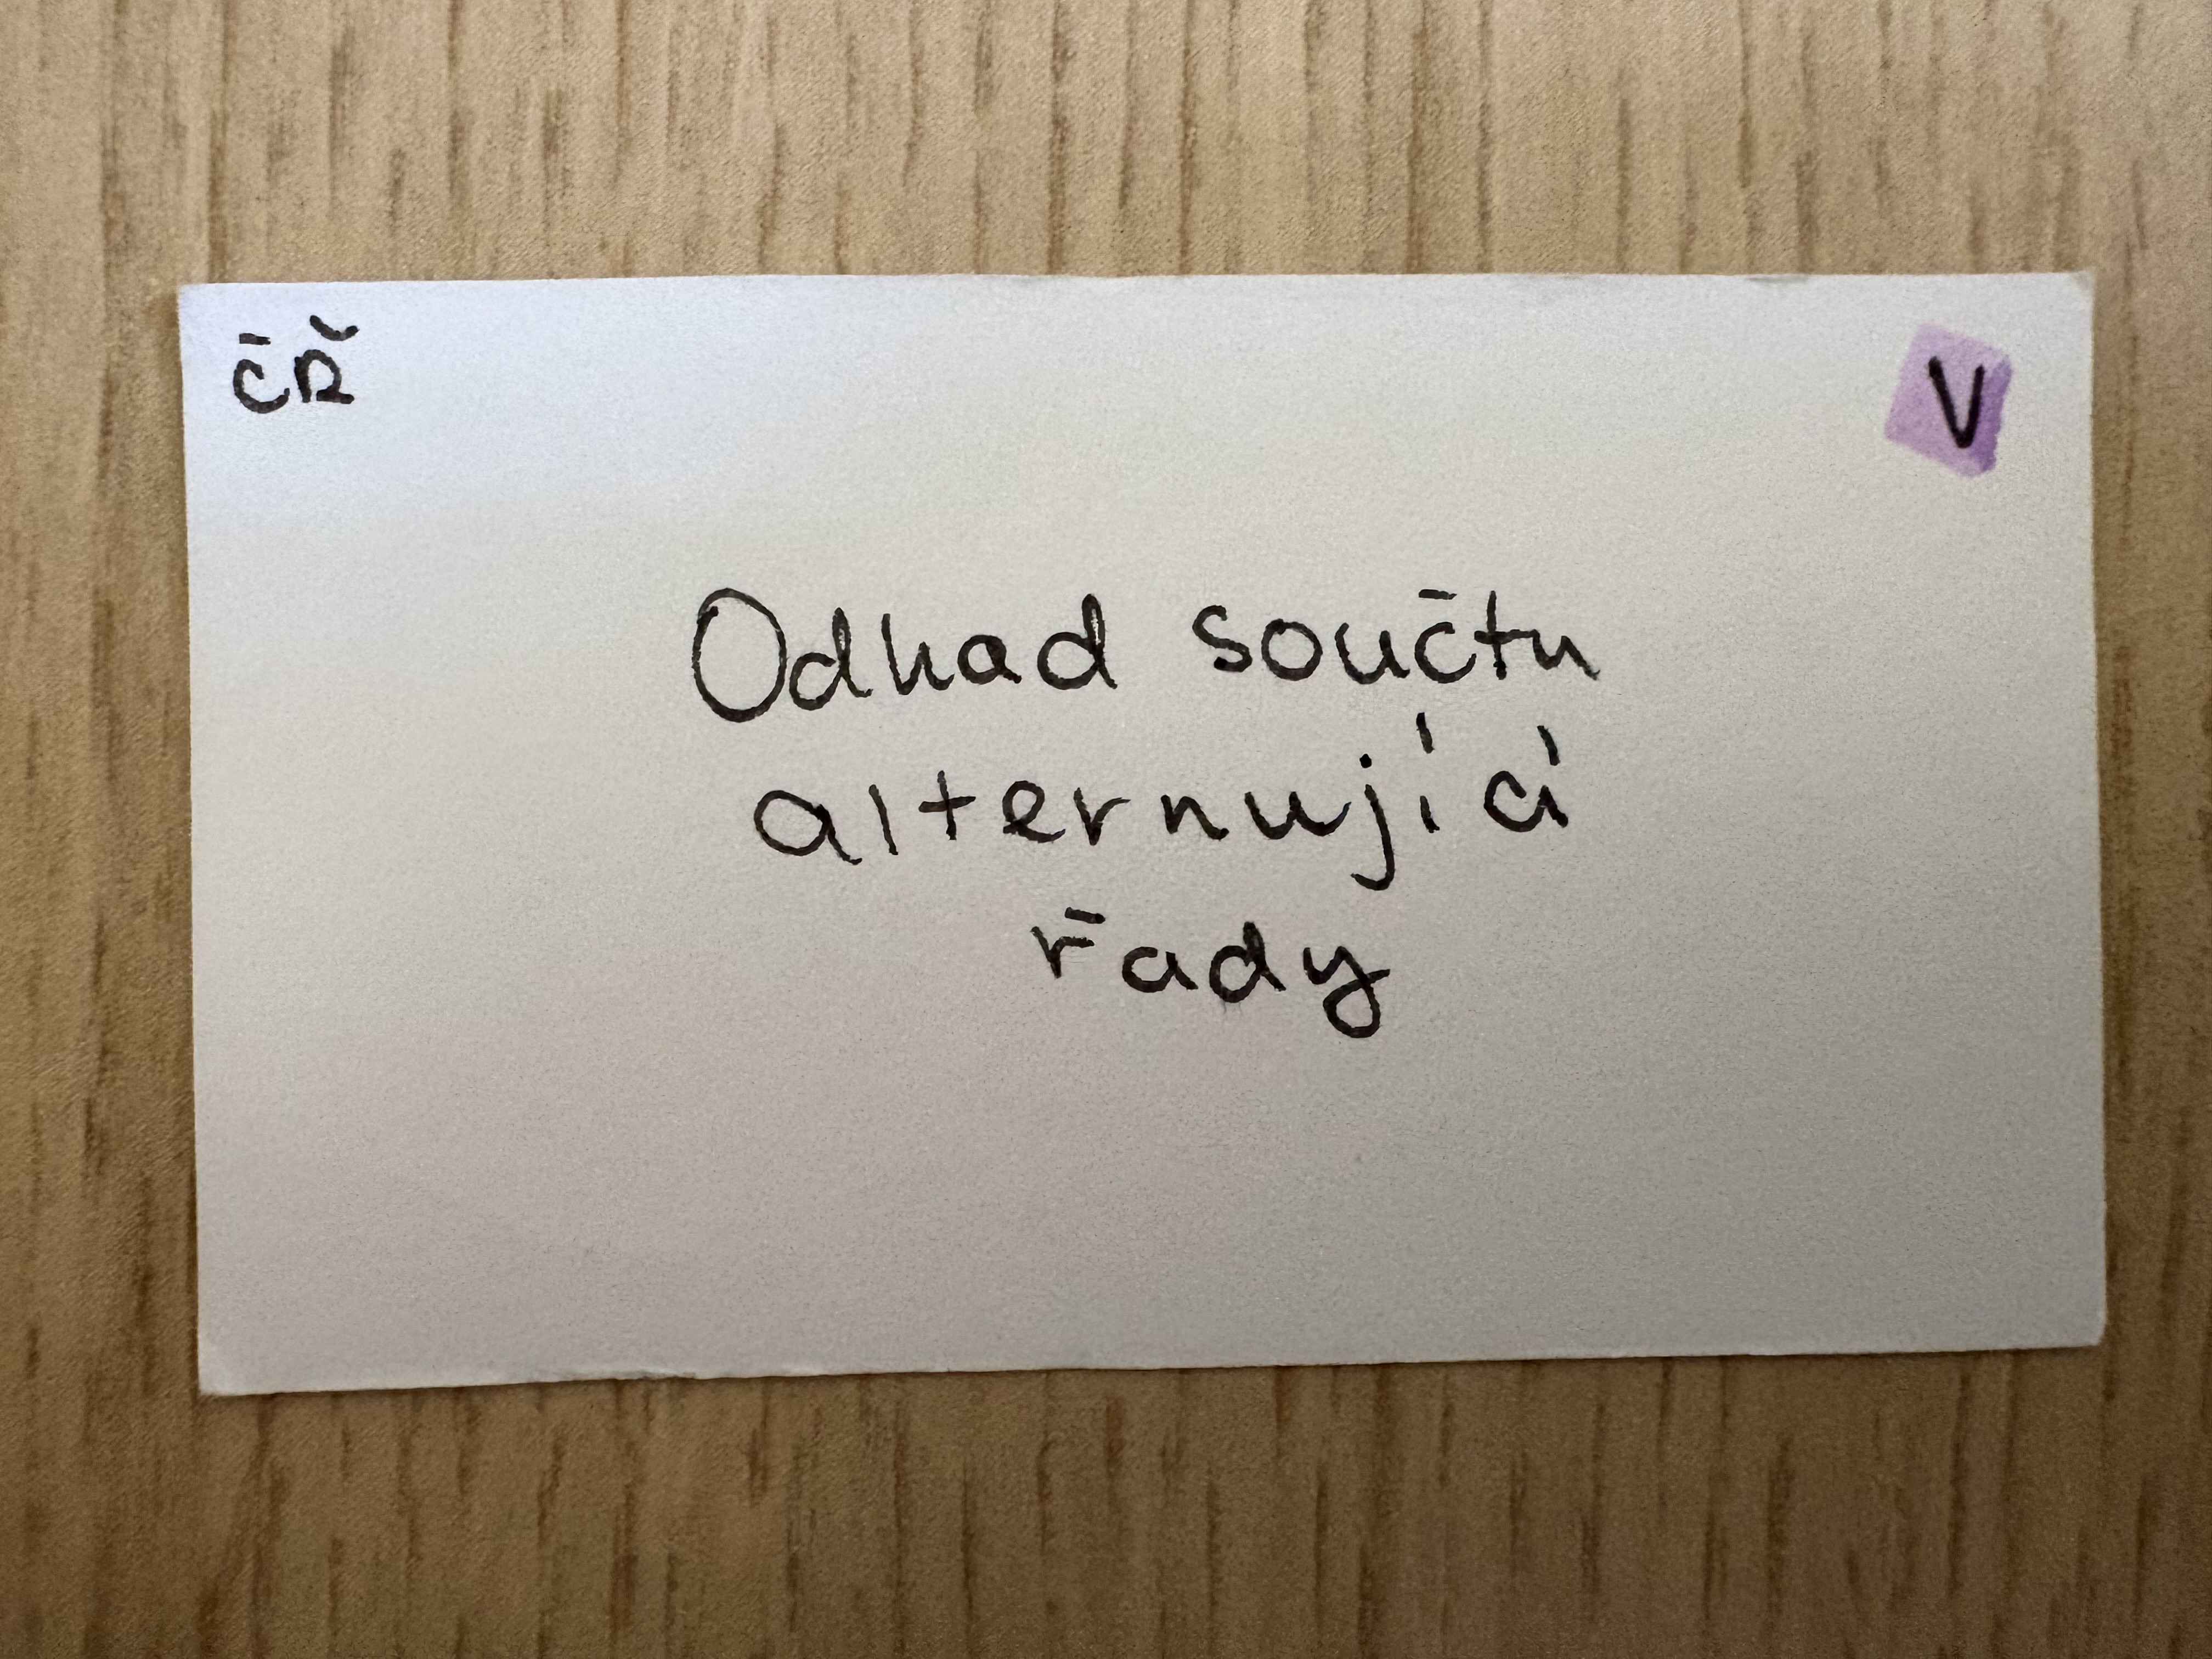 ČŘ
V
Odhad součtu
alternující
řady